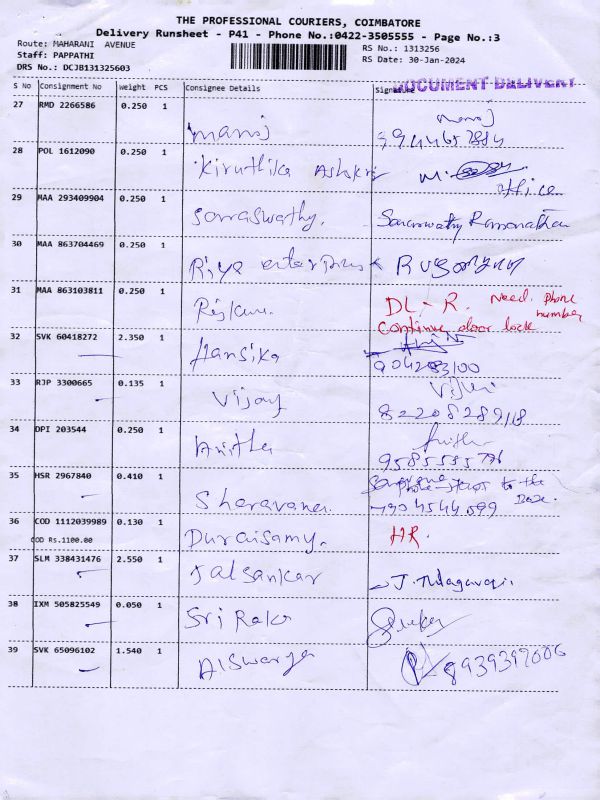 THE PROFESSIONAL COURIERS, COIMBATORE
Delivery Runsheet - P41 - Phone No.:0422-3505555 - Page No.:3
Route: MAHARANI AVENUE
Staff: PAPPATHI
DRS No.: DCJB131325603
RS No.: 1313256
RS Date: 30-Jan-2024
S No Consignment No Weight PCS Consignee Details Signature
DOCUMENT DELIVERY
27 RMD 2266586 0.250 1 manoj manoj
28 POL 1612090 0.250 1 Kiruthika M.
office
29 MAA 293409904 0.250 1 Sarraswathy. Saraswathy Ramanathan
30 MAA 863704469 0.250 1 Riya enterprises
31 MAA 863103811 0.250 1 DL-R. Need phone number
Continue door lock
32 SVK 60418272 2.350 1 Hansika
33 RJP 3300665 0.135 1 Vijay
34 DPI 203544 0.250 1 Anitha
35 HSR 2967840 0.410 1 Sharavana. to the
36 COD 1112039989 0.130 1 Duraisamy. HR.
COD Rs.1100.00
37 SLM 338431476 2.550 1 Jaisankar
38 IXM 505825549 0.050 1 Sri
39 SVK 65096102 1.540 1 Aiswarya